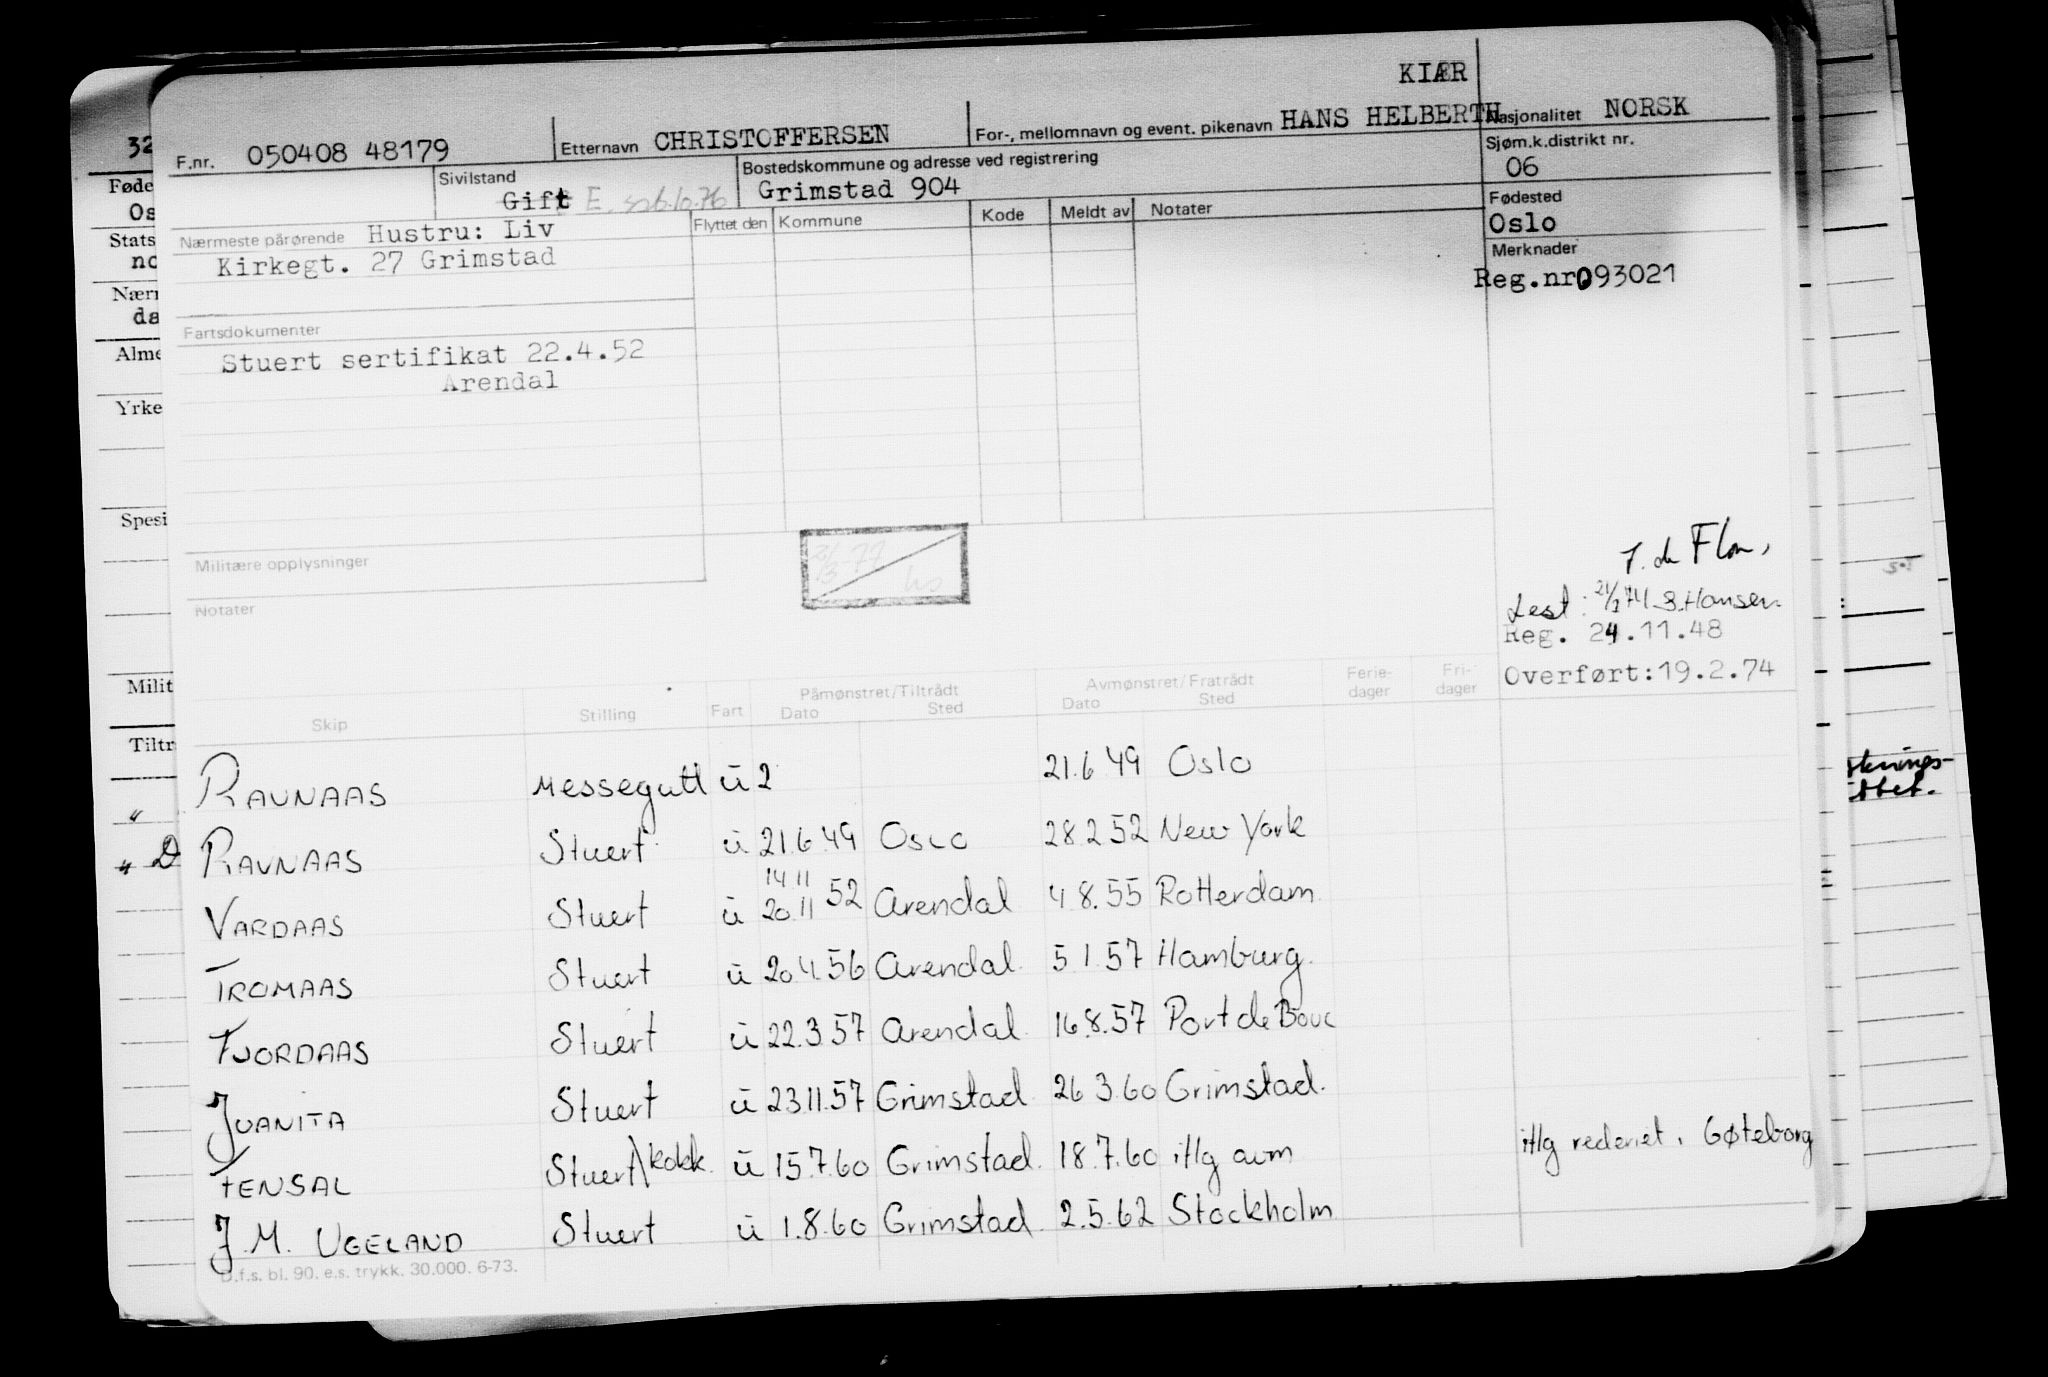 KIÆR
F.nr. 050408 48179 Etternavn CHRISTOFFERSEN For-, mellomnavn og event. pikenavn HANS HELBERTH Nasjonalitet NORSK
Sivilstand Gift E. Bostedskommune og adresse ved registrering Grimstad 904
Sjøm.k.distrikt nr. 06
Fødested
Oslo
Nærmeste pårørende Hustru: Liv
Kirkegt. 27 Grimstad
Flyttet den Kommune Kode Meldt av Notater
Merknader
Reg.nr093021
Fartsdokumenter
Stuert sertifikat 22.4.52
Arendal
Militære opplysninger
Notater
Lest: S.Hansen.
Reg. 24.11.48
Overført:19.2.74
Skip Stilling Fart Påmønstret/Tiltrådt Dato Sted Avmønstret/Fratrådt Dato Sted Ferie-dager Fri-dager
RAVNAAS Messegutt ü 2 21.6 49 Oslo
RAVNAAS Stuert ü 21.6.49 Oslo 28.2 52 New York
14 11
VARDAAS Stuert ü 20.11 52 Arendal 4.8.55 Rotterdam
TROMAAS Stuert ü 20.4.56 Arendal 5.1.57 Hamburg.
FJORDAAS Stuert ü 22.3.57 Arendal 16.8.57 Port de Bouc
JUANITA Stuert ü 23.11.57 Grimstad 26 3.60 Grimstad.
FENSAL Stuert/kokk. ü 15.7.60 Grimstad. 18.7.60 iflg avm iflg rederiet i Gøteborg
J.M. UGELAND Stuert ü 1.8.60 Grimstad. 2.5.62 Stockholm
D.f.s. bl. 90. e.s. trykk. 30.000. 6-73.
32
Føde
Os
Stats
no
Nærm
da
Alme
Yrke
Spesi
Milit
Tiltr